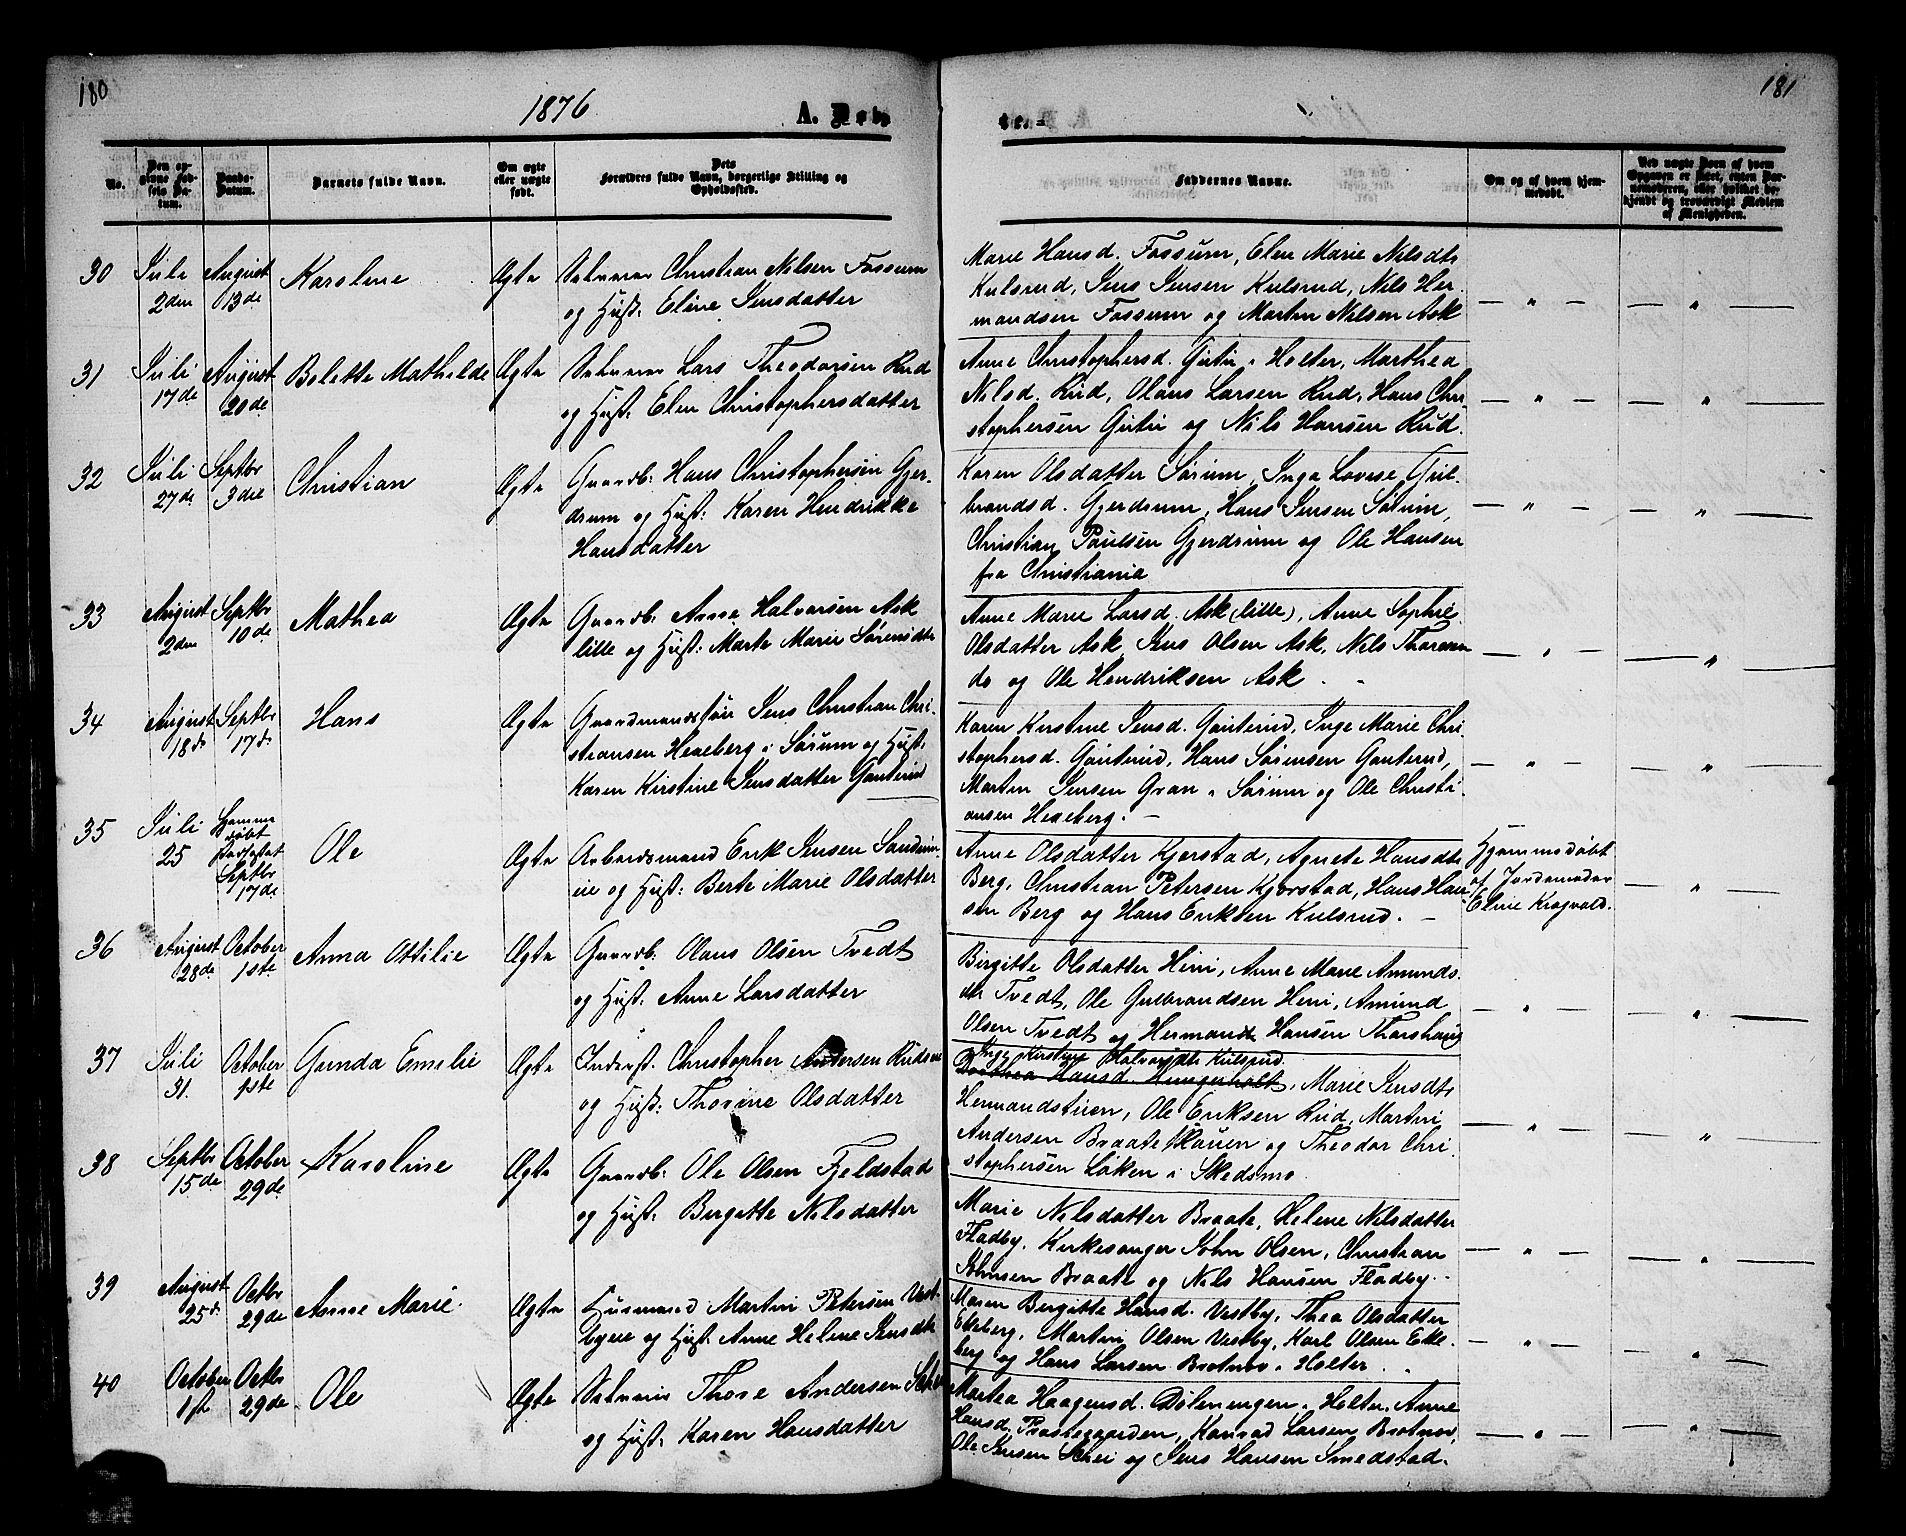 180
1876
A. Døb
No.
Den op-
givne Fød-
sels Da-
tum.
Daabs-
Datum.
Barnets fulde Navn.
Om ægte
eller uægte
født.
Dets
Forældres fulde Navn, borgerlige Stilling og
Opholdssted.
30
Juli
2den
August
13de
Karoline
Ægte
Christian Nilsen Fossum
og Hust: Eline Jensdatter
31
Juli
17de
August
20de
Bolette Mathilde
Ægte
Lars Theodorsen Rud
og Hust: Elen Christophersdatter
32
Juli
27de
Septbr
3die
Christian
Ægte
Gaardb: Hans Christophersen Gjer-
drum og Hust: Karen Hendrikke
Hansdatter
33
August
2den
Septbr
10de
Mathea
Ægte
Gaardb: Halvorsen Ask
lille og Hust: Marte Marie Sørensdtr
34
August
18de
Septbr
17de
Hans
Ægte
Gaardmandssøn Jens Christian Chri-
stiansen Hexeberg i Sørum og Hust:
Karen Kirstine Jensdatter Gauterud
35
Juli
25
Hjemme
døbt
Septbr
17de
Ole
Ægte
Arbeidsmand Erik Jensen
eie og Hust: Berte Marie Olsdatter
36
August
28de
October
1ste
Anna Ottilie
Ægte
Gaardb: Olaus Olsen Tvedt
og Hust: Anne Larsdatter
37
Juli
31.
October
1ste
Gunda Emilie
Ægte
Inderst: Christopher Andersen
og Hust: Thorine Olsdatter
38
Septbr
15de
October
29de
Karoline
Ægte
Gaardb: Ole Olsen Fjeldstad
og Hust: Bergitte Nilsdatter
39
August
25de
Octbr
29de
Anne Marie
Ægte
Husmand Martin Petersen Vest-
byeie og Hust: Anne Helene Jensdtr
40
October
1ste
Octbr
29de
Ole
Ægte
Thore Andersen
og Hust: Karen Hansdatter
181
te. -
Faddernes Navne.
Om og af hvem hjem-
medøbt.
Ved uægte Børn af hvem
Opgaven er skeet, enten Bar-
nemoderen, eller hvilket be-
kjendt og troværdigt Medlem
af Menigheden.
Marie Hansd. Fossum, Elen Marie Nilsdtr
Kulsrud, Jens Jensen Kulsrud, Nils Her-
mandsen Fossum og Martin Nilsen Ask
— " —
— " —
Anne Christophersd. Gutu i Holter, Marthea
Nilsd. Rud, Olaus Larsen Rud, Hans Chri-
stophersen Gutu og Nils Hansen Rud.
— " —
— " —
Karen Olsdatter Sørum, Inga Lovise Gul-
brandsd. Gjerdrum, Hans Jensen Sørum,
Christian Paulsen Gjerdrum og Ole Hansen
fra Christiania
— " —
— " —
Anne Marie Larsd. Ask (lille), Anne Sophie
Olsdatter Ask, Jens Olsen Ask, Nils
do og Ole Hendriksen Ask.
— " —
— " —
Karen Kirstine Jensd. Gauterud, Inge Marie Chri-
stophersd. Gauterud, Hans Sørensen Gauterud,
Martin Jensen Gran i Sørum og Ole Christi-
ansen Hexeberg. —
— " —
— " —
Anne Olsdatter Kjerstad, Agnete Hansdtr
Berg, Christian Petersen Kjerstad, Hans Han-
sen Berg og Hans Eriksen Kulsrud. —
Hjemmedøbt
af Jordemoder
Eline Krogvold.
— " —
Birgitte Olsdatter Heni, Anne Marie Amunds-
dtr Tvedt, Ole Gulbrandsen Heni, Amund
Olsen Tvedt og Hermand Hansen Thorshaug
— " —
— " —
Inge Kirstine Halvorsdtr Kulsrud.
Dorthea Hansd. Hungerholt, Marie Jensdtr
Hermandstuen, Ole Eriksen Rud, Martin
Andersen Braateskauen og Theodor Chri-
stophersen Løken i Skedsmo
— " —
— " —
Marie Nilsdatter Braate, Helene Nilsdatter
Fladby, Kirkesanger John Olsen, Christian
Johnsen Braate og Nils Hansen Fladby.
— " —
— " —
Maren Birgitte Hansd. Vestby, Thea Olsdatter
Ekeberg, Martin Olsen Vestby, Karl Olsen Eke-
berg og Hans Larsen Brotnov i Holter.
— " —
— " —
Martea Haagensd. Dølenengen i Holter, Anne
Hansd. Præstegaarden, Konrad Larsen Brotnov,
Ole Jensen Schei og Jens Hansen Smedstad.
— " —
— " —